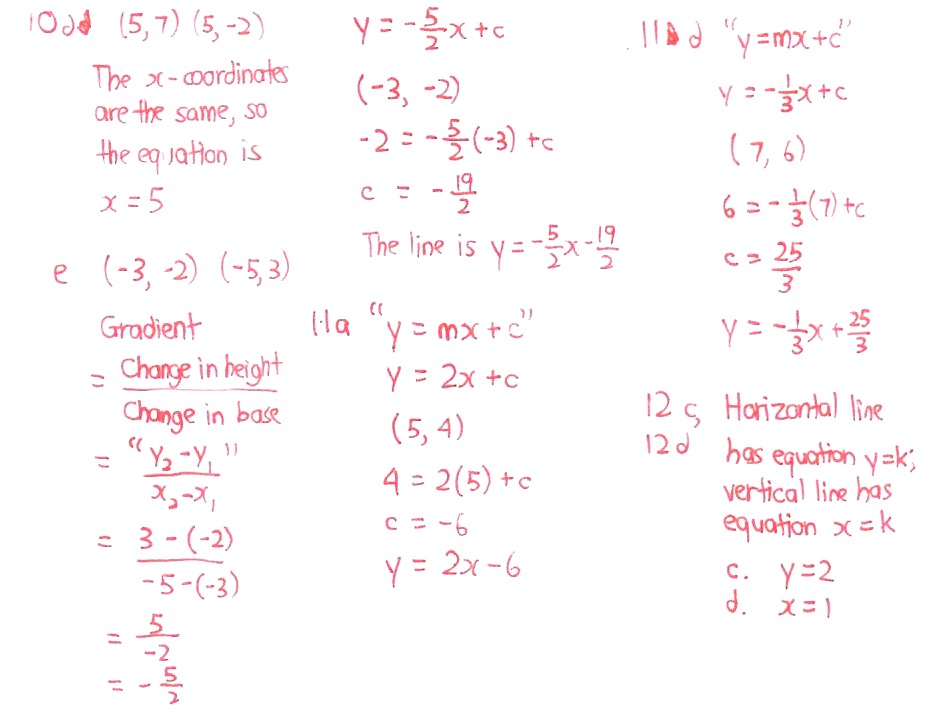 10d (5,7) (5,-2)
The x-coordinates
are the same, so
the equation is
x = 5
e (-3, -2) (-5,3)
Gradient
= Change in height
Change in base
= "y₂-y₁"
x₂-x₁
= 3 - (-2)
-5-(-3)
= 5
-2
= - 5/2
y = -5/2x + c
(-3, -2)
-2 = -5/2(-3) + c
c = -19/2
The line is y = -5/2x - 19/2
11a "y = mx + c"
y = 2x + c
(5, 4)
4 = 2(5) + c
c = -6
y = 2x - 6
11d "y = mx + c"
y = -1/3x + c
(7, 6)
6 = -1/3(7) + c
c = 25/3
y = -1/3x + 25/3
12c, Horizontal line
12d has equation y=k;
vertical line has
equation x = k
c. y = 2
d. x = 1